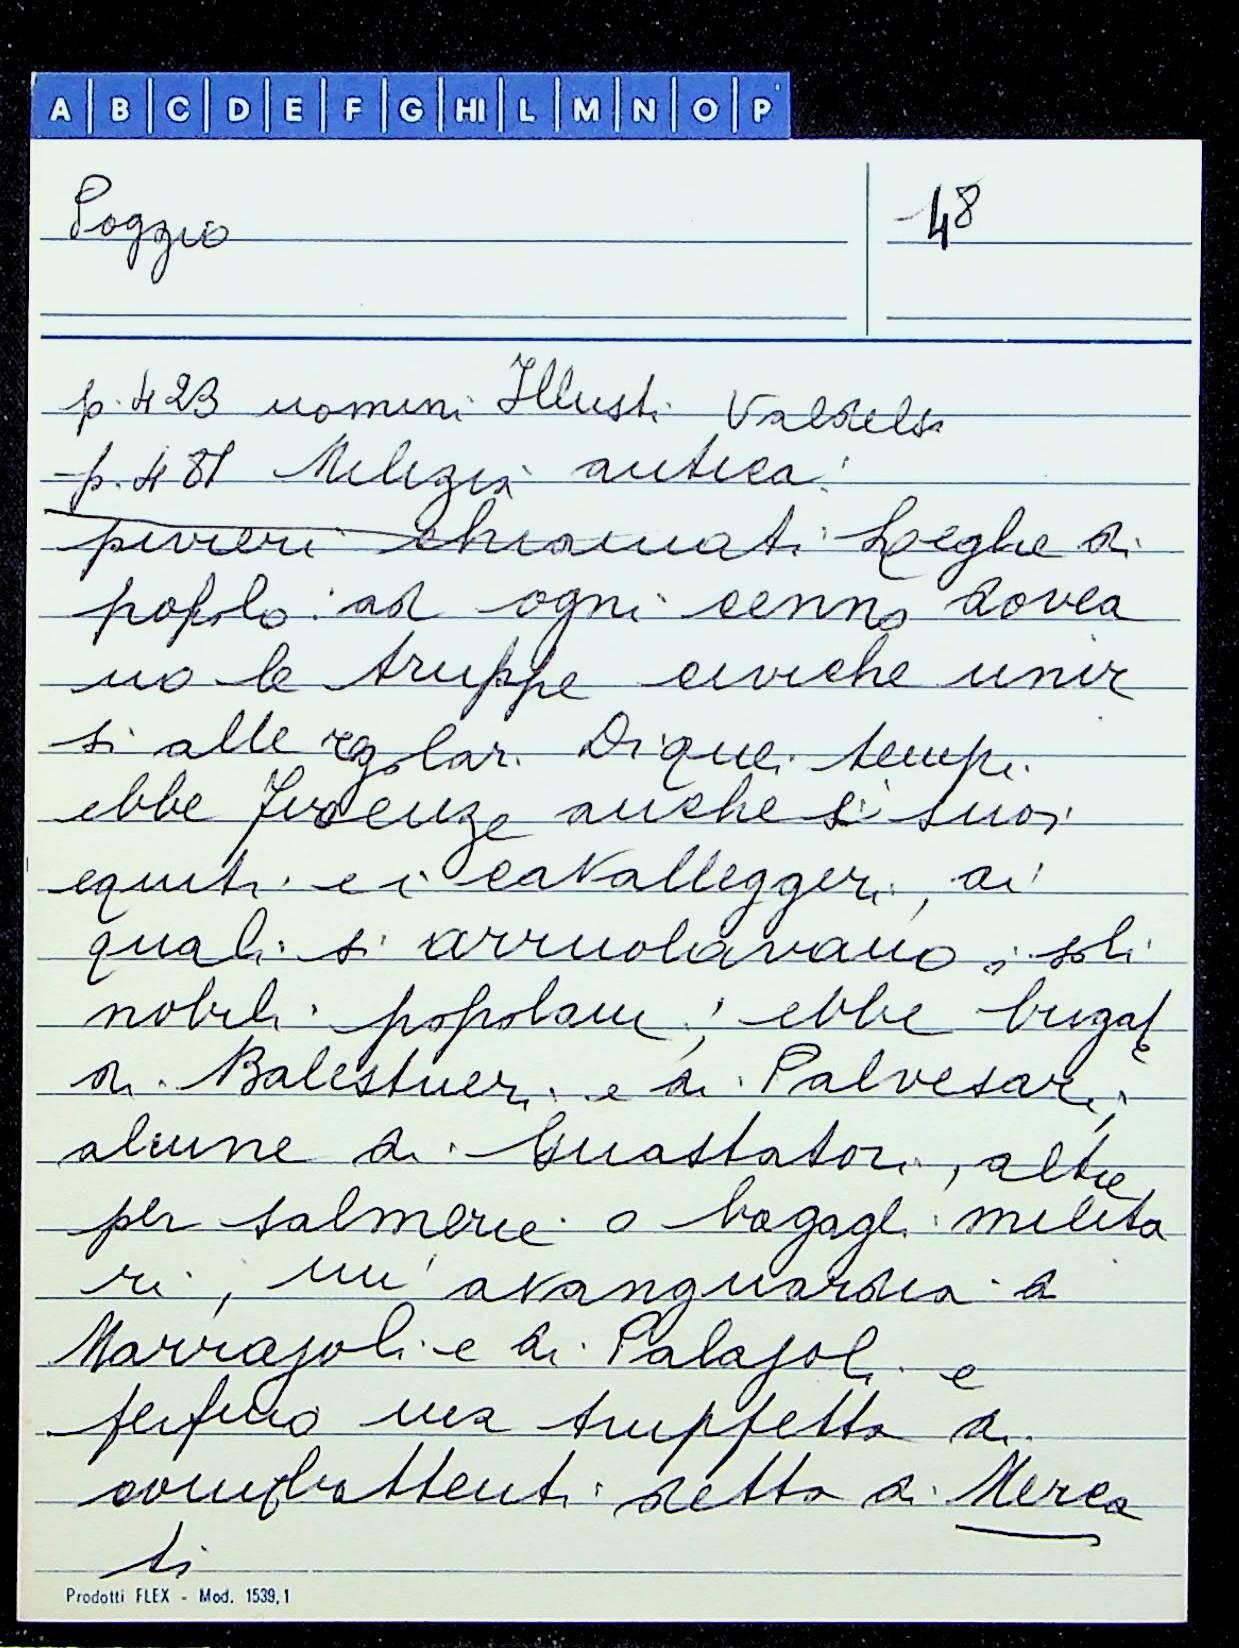 A B C D E F G HI L M N O P
Poggio 48
p. 423 uomini Illusti Valdelsa
p. 481 Milizia antica:
pivieri chiamati Leghe di
popolo: ad ogni cenno dovea
no le truppe civiche unir
si alle regolari Di quei tempi
ebbe Firenze anche i suoi
equiti e i cavalleggeri, ai
quali si arruolavano i soli
nobili popolani; ebbe brigate
di Balestrieri e di Palvesari,
alcune di Guastatori, altre
per salmerie o bagagli milita
ri, un' avanguardia di
Marrajoli e di Palajoli e
perfino una truppetta di
combattenti detta di Merca
ti
Prodotti FLEX - Mod. 1539,1